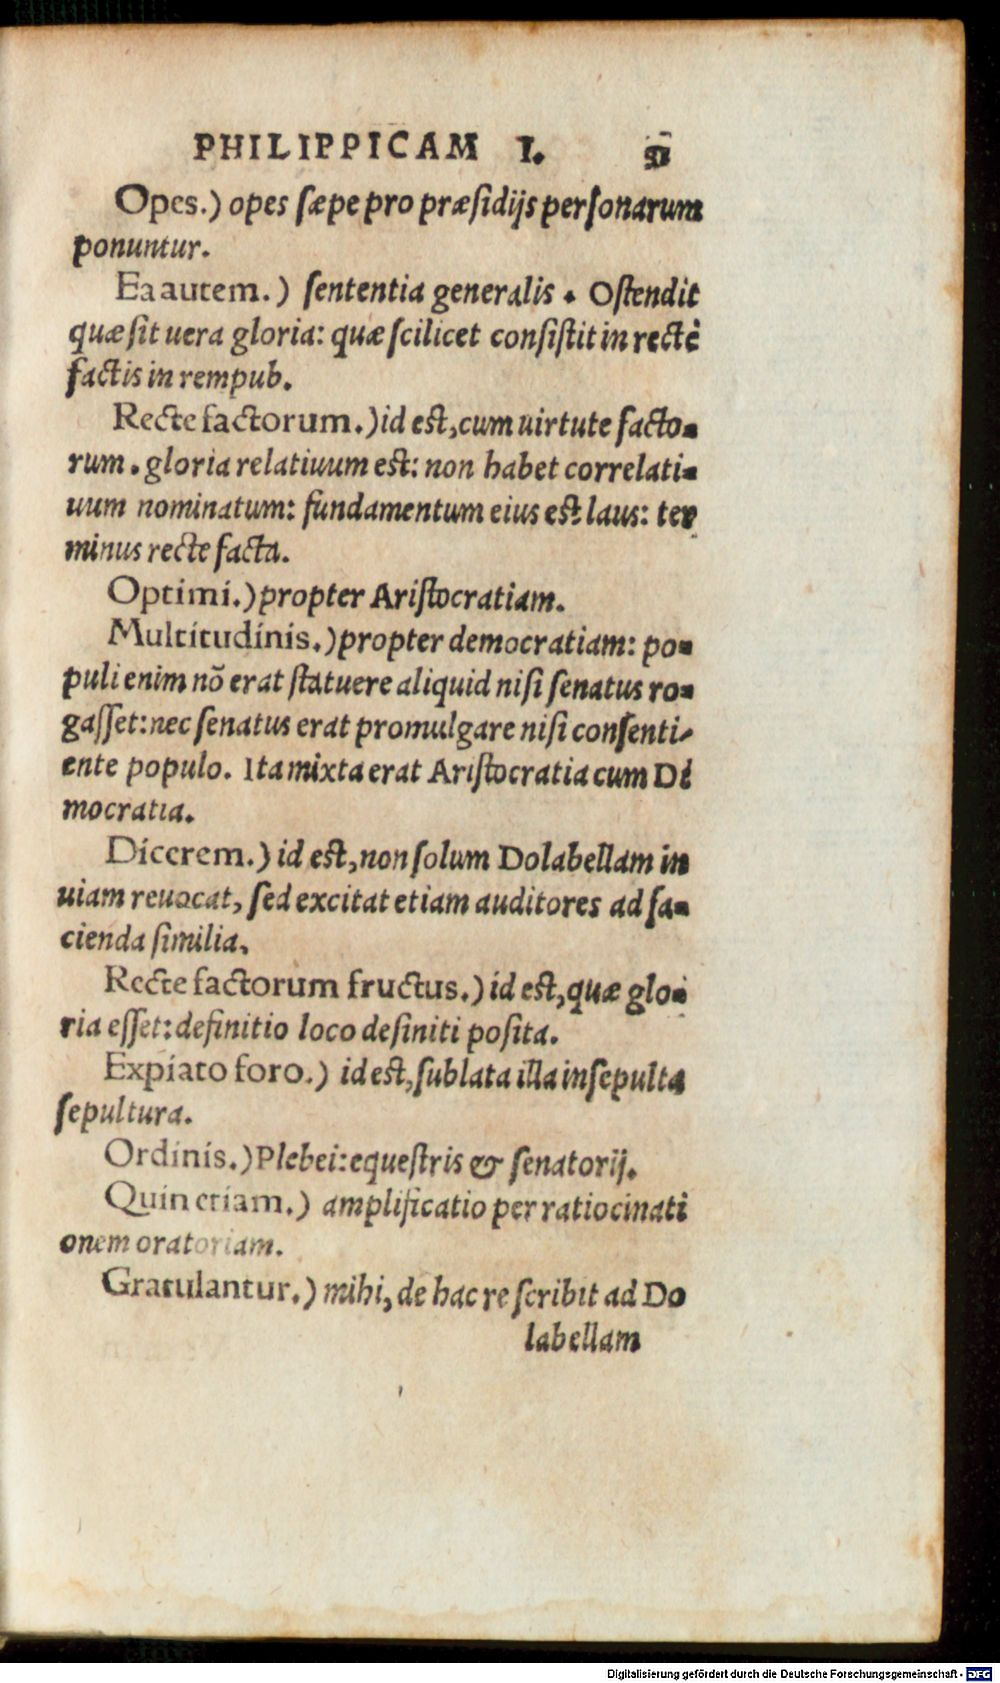 PHILIPPICAM I.
Opes.) opes sæpe pro præsidijs personarum
ponuntur.
Ea autem.) sententia generalis. Ostendit
quæ sit uera gloria: quæ scilicet consistit in rectè
factis in rempub.
Recte factorum.) id est, cum uirtute facto-
rum. gloria relatiuum est: non habet correlati-
uum nominatum: fundamentum eius est laus: ter
minus recte facta.
Optimi.) propter Aristocratiam.
Multitudinis.) propter democratiam: po-
puli enim nõ erat statuere aliquid nisi senatus ro-
gasset: nec senatus erat promulgare nisi consenti-
ente populo. Ita mixta erat Aristocratia cum Di
mocratia.
Dicerem.) id est, non solum Dolabellam in
uiam reuocat, sed excitat etiam auditores ad fa-
cienda similia.
Recte factorum fructus.) id est, quæ glo-
ria esset: definitio loco definiti posita.
Expiato foro.) id est, sublata illa insepulta
sepultura.
Ordinis.) Plebei: equestris & senatorij.
Quin etiam.) amplificatio per ratiocinati
onem oratoriam.
Gratulantur.) mihi, de hac re scribit ad Do
labellam
Digitalisierung gefördert durch die Deutsche Forschungsgemeinschaft - DFG